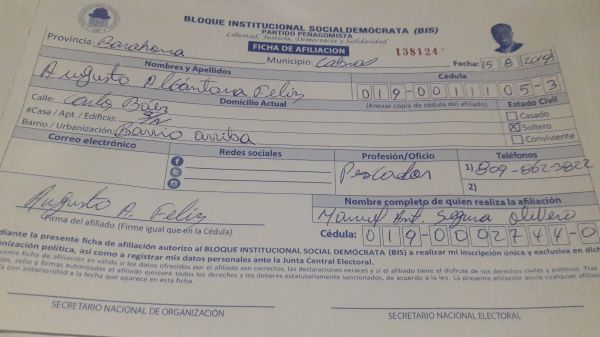 BLOQUE INSTITUCIONAL SOCIALDEMÓCRATA (BIS)
PARTIDO PEÑAGOMISTA
Libertad, Justicia, Democracia y Solidaridad
FICHA DE AFILIACION
138124
Provincia: Barahona Municipio: Cabral Fecha: 15 8 2019
Nombres y Apellidos Cédula
Augusto Alcántara Feliz 019-0011105-3
Domicilio Actual (Anexar copia de cédula del afiliado) Estado Civil
Calle: Carlos Báez Casado
#Casa / Apt. / Edificio: S/N Soltero
Barrio / Urbanización: Barrio arriba Conviviente
Correo electrónico Redes sociales Profesión/Oficio Teléfonos
Pescador 1) 809-862-2822
2)
Augusto A. Feliz
Firma del afiliado (Firme igual que en la Cédula)
Nombre completo de quien realiza la afiliación
Manuel Ant. Segura
Cédula: 019-0002744-0
diante la presente ficha de afiliación autorizo al BLOQUE INSTITUCIONAL SOCIAL DEMÓCRATA (BIS) a realizar mi inscripción única y exclusiva en dich
anización política, así como a registrar mis datos personales ante la Junta Central Electoral.
sente ficha de afiliación es válida si los datos ofrecidos por el afiliado son correctos, las declaraciones veraces y si el afiliado tiene el disfrute de sus derechos civiles y políticos. Tras
ón, sello y firmas autorizadas el afiliado ejercerá todos los derechos y los deberes estatutariamente sancionados, de acuerdo a la ley. La presente afiliación anula cualquier afiliac
a con anterioridad a la fecha que aparece en esta ficha.
SECRETARIO NACIONAL DE ORGANIZACIÓN SECRETARIO NACIONAL ELECTORAL